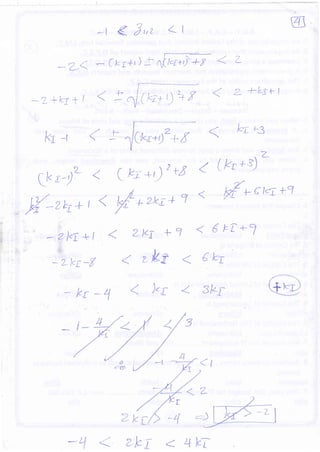 4
-1 < z₁,₂ < 1
-2 < -(kI+1) ± √(kI+1)²+8 < 2
-2+kI+1 < ± √(kI+1)²+8 < 2+kI+1
kI-1 < ± √(kI+1)²+8 < kI+3
(kI-1)² < (kI+1)²+8 < (kI+3)²
kI² -2kI+1 < kI²+2kI+9 < kI²+6kI+9
-2kI+1 < 2kI+9 < 6kI+9
-2kI-8 < 2kI < 6kI
-kI-4 < kI < 3kI ÷kI
-1-4/kI < 1 < 3
∴ -1-4/kI < 1
-4/kI < 2
2kI > -4 ⇒ kI > -2
-4 < 2kI < 4kI